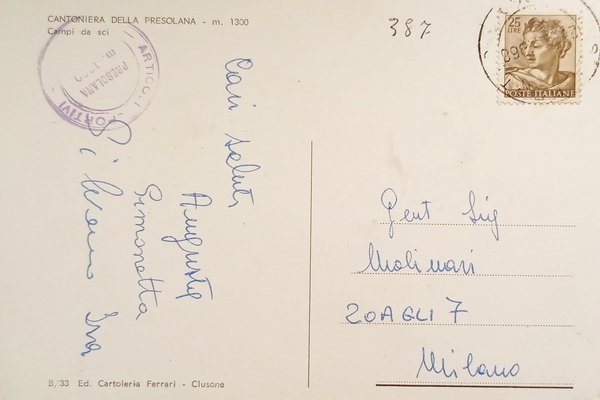 CANTONIERA DELLA PRESOLANA - m. 1300
Campi da sci
387
25
LIRE
POSTE ITALIANE
ARTICOLI SPORTIVI
PRESOLANA
Cari saluti
Augusto
Simonetta
Isa
Gent Sig
Molinari
ZOAGLI 7
Milano
B/33 Ed. Cartoleria Ferrari - Clusone